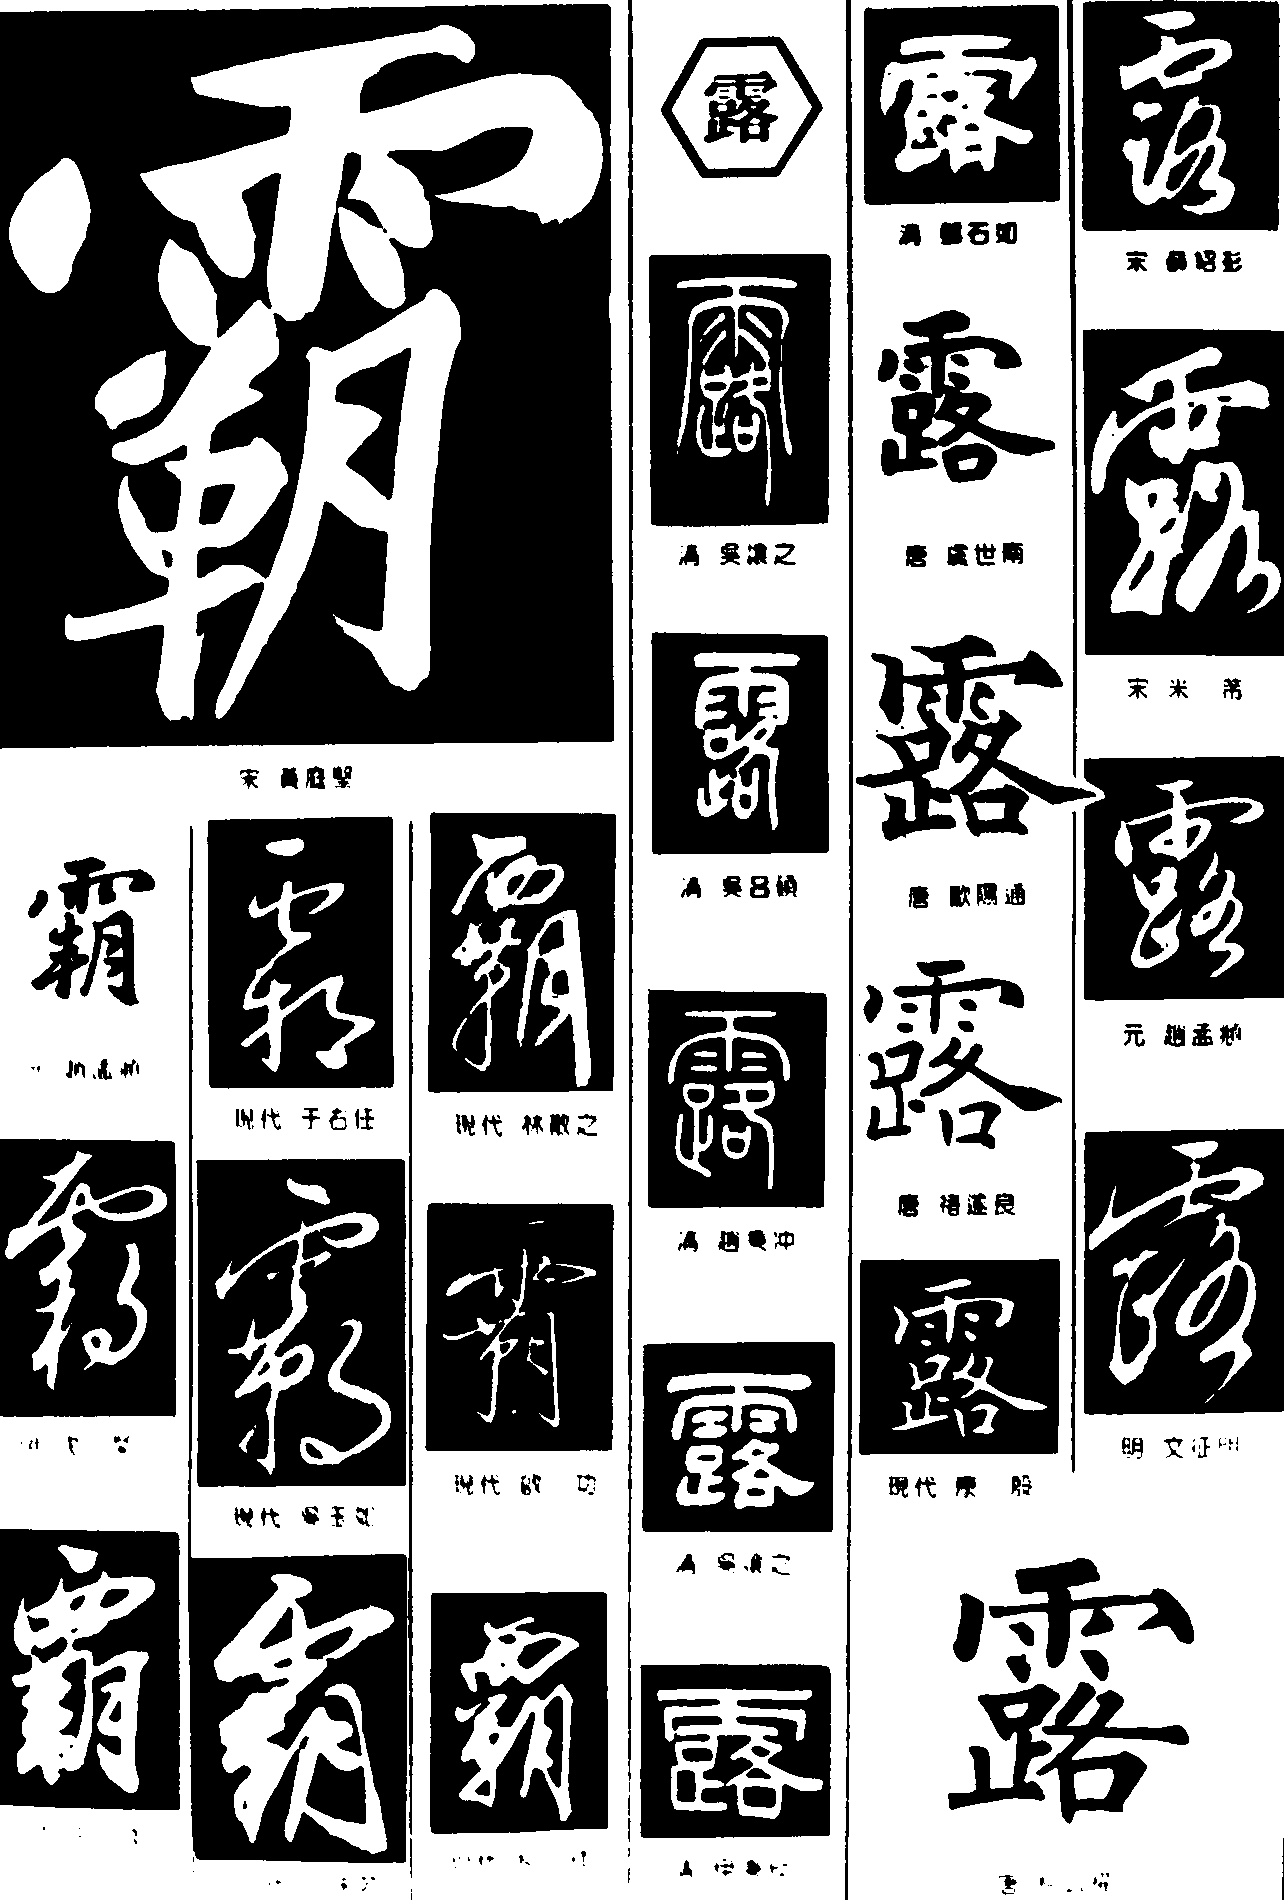 霸
宋 黃庭堅
霸
霸
現代 于右任
霸
現代 林散之
霸
霸
現代 吳玉如
霸
現代 啟 功
霸
霸
霸
露
露
清 吳讓之
露
露
清 趙之沖
露
清 吳讓之
露
露
清 鄧石如
露
唐 虞世南
露
唐 歐陽通
露
唐 褚遂良
露
現代 康 殷
露
露
宋 薛紹彭
露
宋 米 芾
露
元 趙孟頫
露
明 文征明